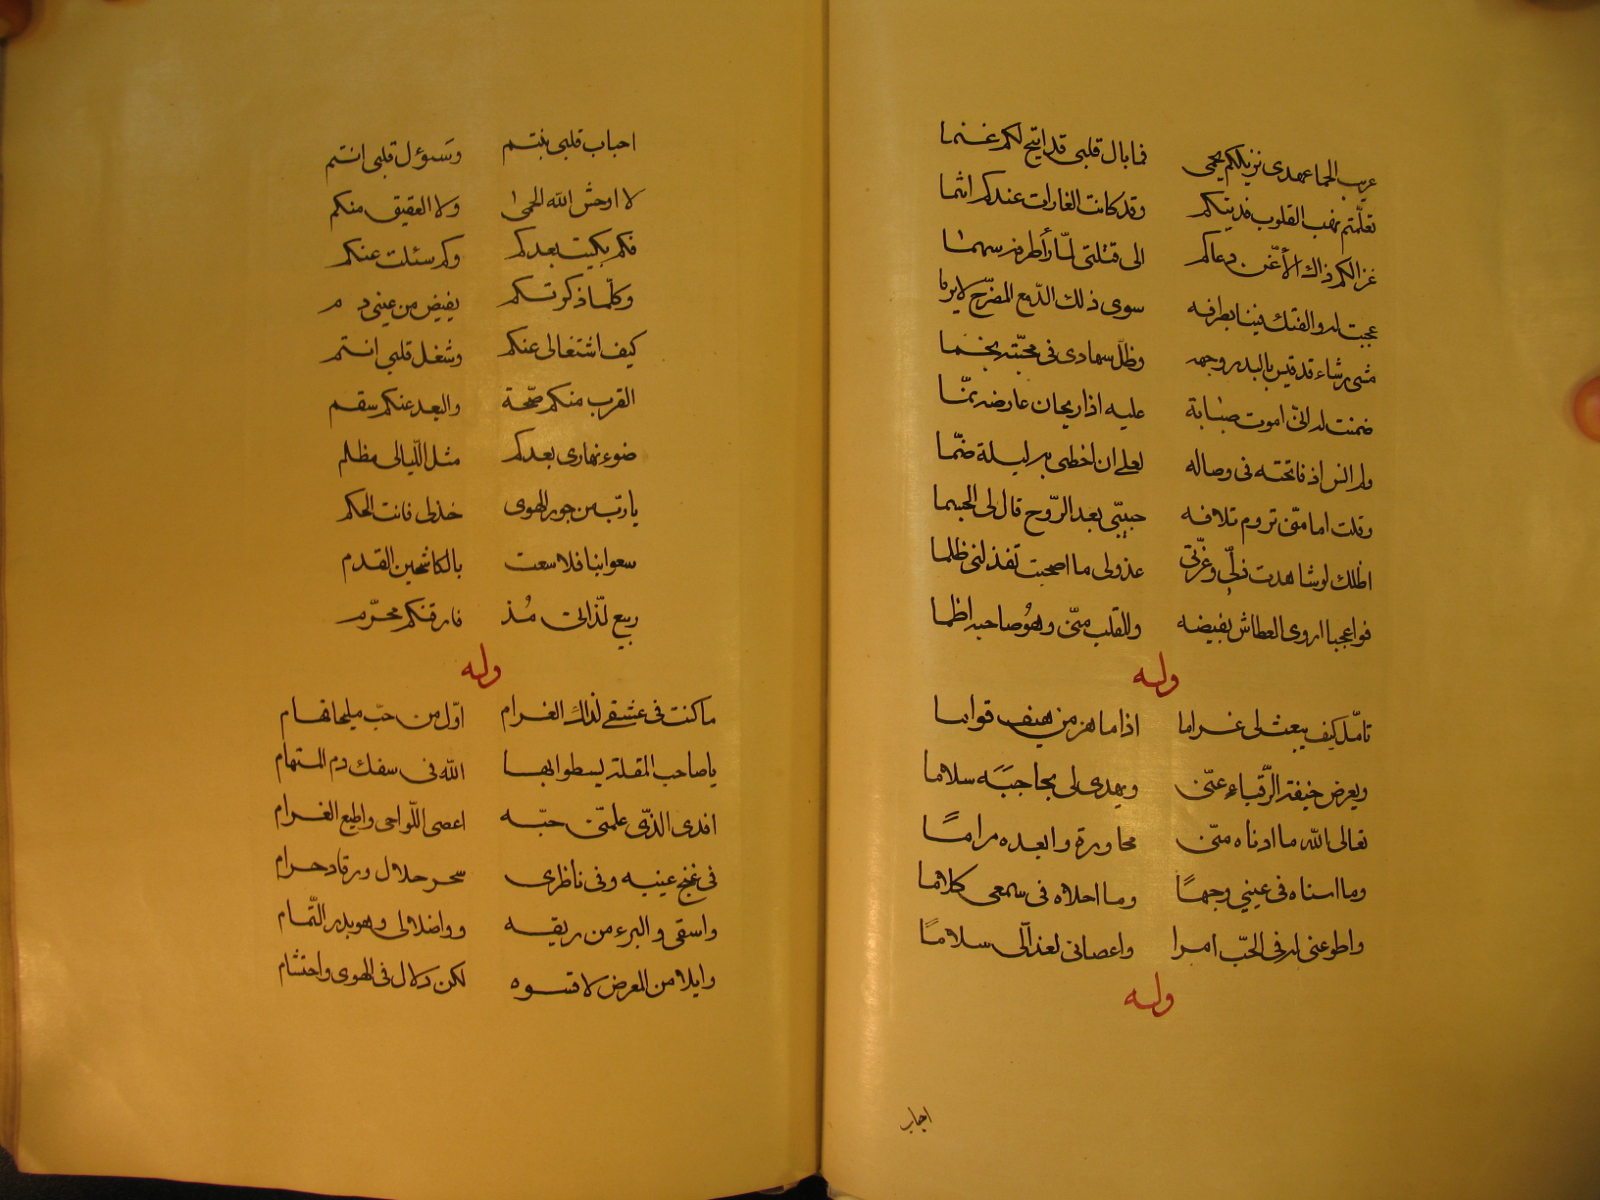 عريب الحما عهدى نزيلكم يحمى فما بال قلبى قد اتيح لكم غنما
تعلّمتم نهب القلوب فديتكم وقد كانت الغارات عندكم اثما
غزالكم ذاك الأغن دعاكم الى قتلتى لمّا سهما
عجبت له والفتك فينا بطرفه سوى ذلك الدّمع المضرّج لا يرما
مشى رشاء قد قيس بالبدر وجهه وظلّ سهادى فى محبّته
ضمنت له انّى اموت صبابة عليه اذا ريحان عارضه نمّا
ولم انس اذ فاتحته فى وصاله لعلى ان اخطى به ليلة ضمّا
وقلت اما منّى تروم تلافه حبيبّى بعد الرّوح قال لى الجسما
اظلك لو شاهدت ذلّى وعزّتى عذولى ما اصحبت تعذلنى ظلما
فواعجبا اروى العطاش بفيضه وللقلب منّى وهُو صاحبه اظما
وله
تامّل كيف يبعث لى غراما اذا ما هز من هيف قواما
ويعرض خيفة الرّقباء عنّى ويهدى لى بحاجبَه سلاما
تعالى الله ما ادناه منّى محاورة وابعده مرامًا
وما اسناه فى عينى وجهًا وما احلاه فى سمعى كلاما
واطوعنى له فى الحبّ امرا واعصانى لعذالّى سلامًا
وله
احباب
احباب قلبى بنتم وسَؤل قلبى انتم
لا اوحش الله الحمى ولا العقيق منكم
فكم بكيت بعدكم وكم سئلت عنكم
وكلّما ذكرتكم يفيض من عينى دم
كيف اشتغالى عنكم وشغل قلبى انتم
القرب منكم صحّة والبعد عنكم سقم
ضوء نهارى بعدكم مثل اللّيالى مظلم
يا ربّ من جور الهوى خذ لى فانت الحكم
سعوا بنا فلا سعت بالكاشحين القدم
ربيع لذّاتى مُذ فارقتكم محرّم
وله
ما كنت فى عشقى لذاك الغرام اوّل من حبّ مليحا فهام
يا صاحب المقلة يسطو بها الله فى سفك دم المستهام
افدى الذّى علمنّى حبّه اعصى اللّواحى واطيع الغرام
فى غنج عينيه وفى ناظرى سحر حلال ورقاد حرام
واسقمى والبرء من ريقه وواضلالى وهو بدر التّمام
وايلا من المعرض لا قسوه لكن دلال فى الهوى واحتشام